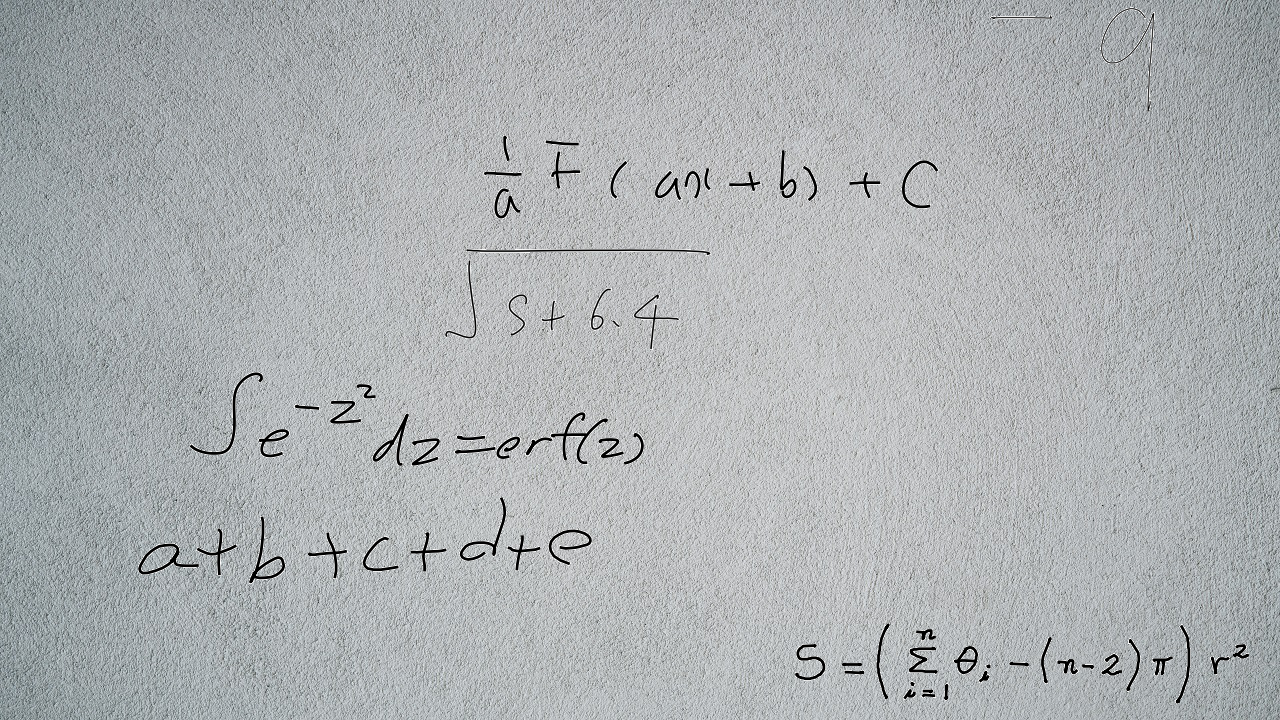 − 9
\frac{1}{a} F (ax + b) + C
\sqrt{s + 6.4}
\int e^{-z^2} dz = erf(z)
a + b + c + d + e
S = \left( \sum_{i=1}^{n} \theta_i - (n-2) \pi \right) r^2